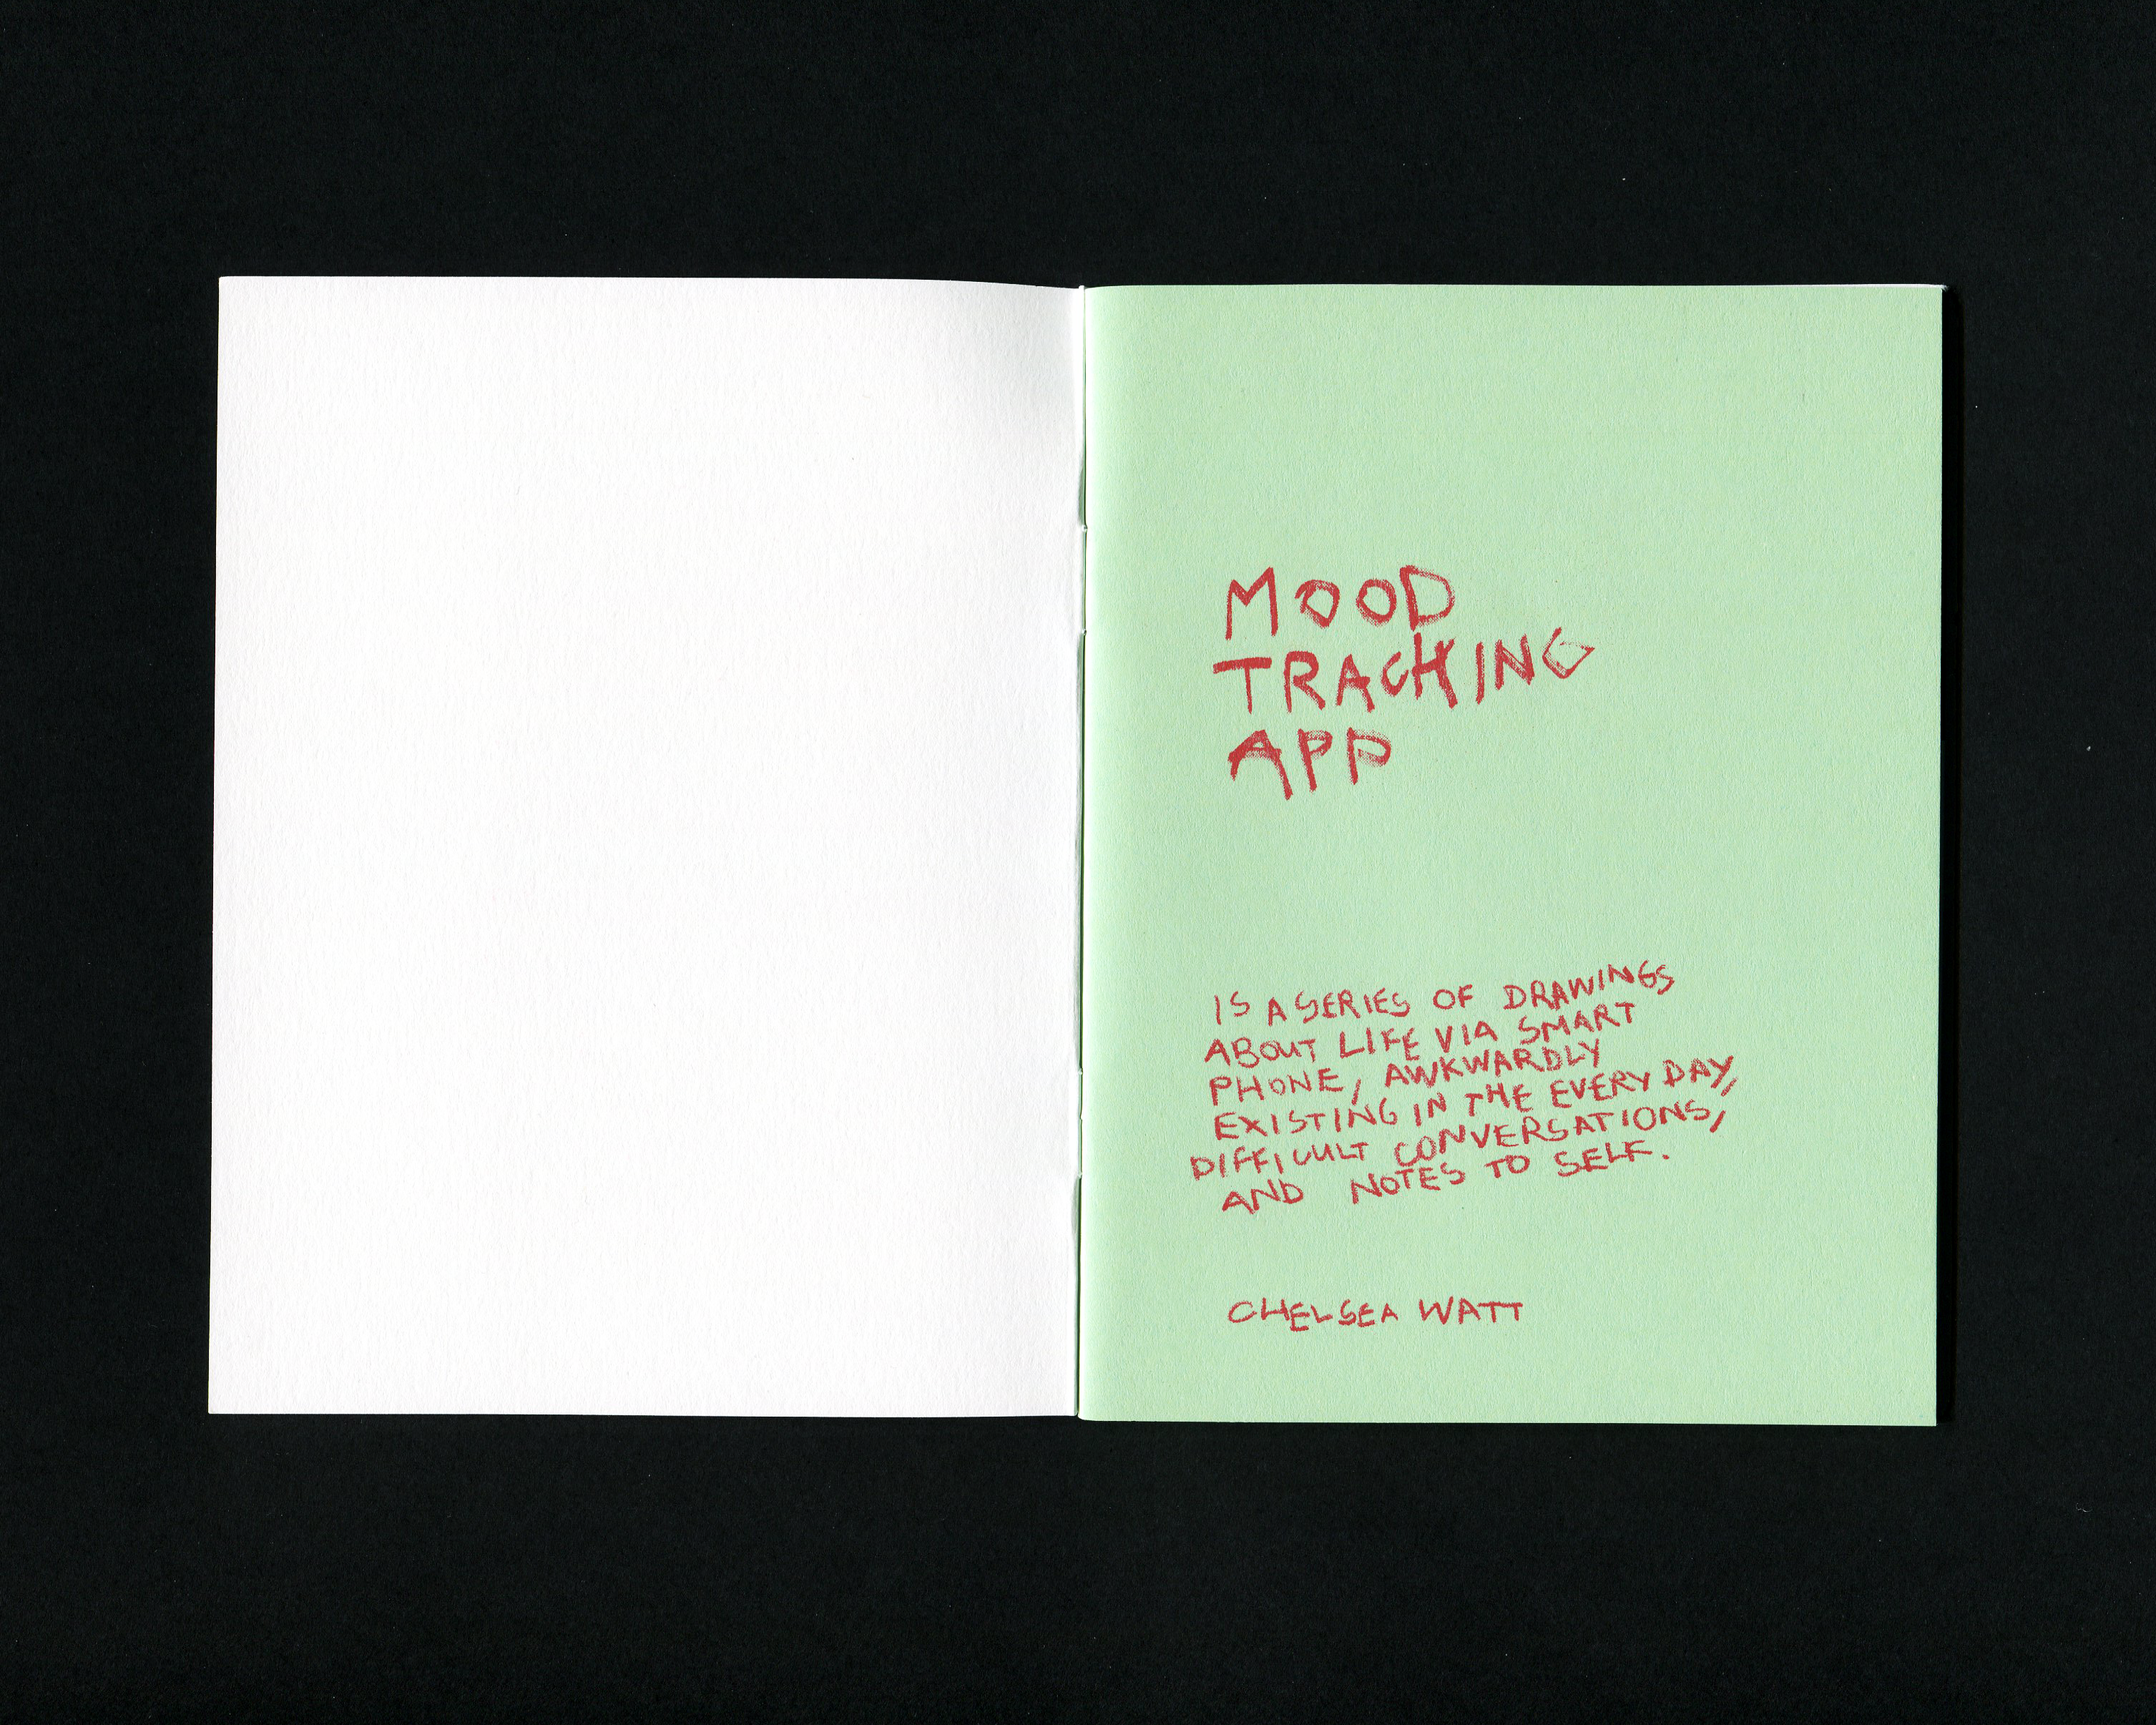 MOOD
TRACKING
APP
IS A SERIES OF DRAWINGS
ABOUT LIFE VIA SMART
PHONE, AWKWARDLY
EXISTING IN THE EVERY DAY,
DIFFICULT CONVERSATIONS,
AND NOTES TO SELF.
CHELSEA WATT